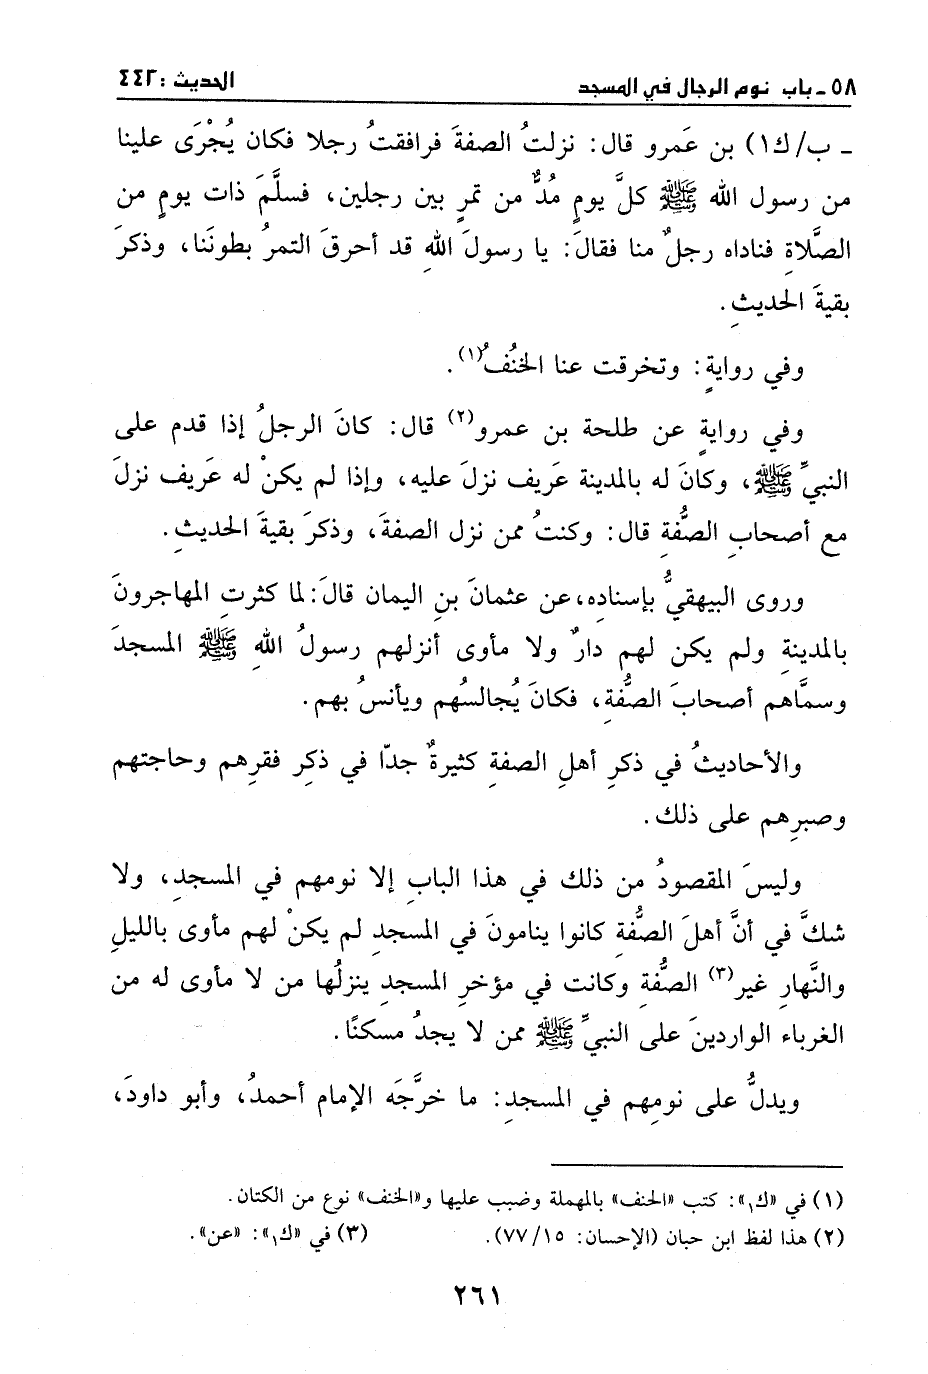 ٥٨ - باب نوم الرجال في المسجد الحديث : ٤٤٢
ـ ب/ك١) بن عَمرو قال: نزلتُ الصفةَ فرافقتُ رجلا فكان يُجْرَى علينا
من رسول الله ﷺ كلَّ يومٍ مُدٌّ من تمرٍ بين رجلين، فسلَّمَ ذات يومٍ من
الصَّلاةِ فناداه رجلٌ منا فقالَ: يا رسولَ اللهِ قد أحرقَ التمرُ بطونَنا، وذكرَ
بقيةَ الحديثِ.
وفي روايةٍ: وتخرقت عنا الخنُفُ(١).
وفي روايةٍ عن طلحة بن عمرو(٢) قال: كانَ الرجلُ إذا قدم على
النبيِّ ﷺ، وكانَ له بالمدينة عَريف نزلَ عليه، وإذا لم يكنْ له عَريف نزلَ
مع أصحابِ الصُّفَّةِ قال: وكنتُ ممن نزل الصفةَ، وذكرَ بقيةَ الحديثِ.
وروى البيهقيُّ بإسنادِه، عن عثمانَ بنِ اليمان قالَ: لما كثرتِ المهاجرونَ
بالمدينةِ ولم يكن لهم دارٌ ولا مأوى أنزلهم رسولُ اللهِ ﷺ المسجدَ
وسمَّاهم أصحابَ الصُّفَّةِ، فكانَ يُجالسُهم ويأنسُ بهم.
والأحاديثُ في ذكرِ أهلِ الصفةِ كثيرةٌ جدّا في ذكِر فقرِهم وحاجتهم
وصبرِهم على ذلك.
وليسَ المقصودُ من ذلك في هذا البابِ إلا نومهم في المسجدِ، ولا
شكَّ في أنَّ أهلَ الصُّفَّةِ كانوا ينامونَ في المسجدِ لم يكنْ لهم مأوى بالليلِ
والنَّهارِ غير(٣) الصُّفَّةِ وكانت في مؤخرِ المسجدِ ينزلُها من لا مأوى له من
الغرباء الواردينَ على النبيِّ ﷺ ممن لا يجدُ مسكنًا.
ويدلُّ على نومِهم في المسجدِ: ما خرَّجَه الإمام أحمدُ، وأبو داودَ،
(١) في «ك١»: كتب «الحنف» بالمهملة وضبب عليها و«الخنف» نوع من الكتان.
(٢) هذا لفظ ابن حبان (الإحسان: ١٥/ ٧٧). (٣) في «ك١»: «عن».
٢٦١